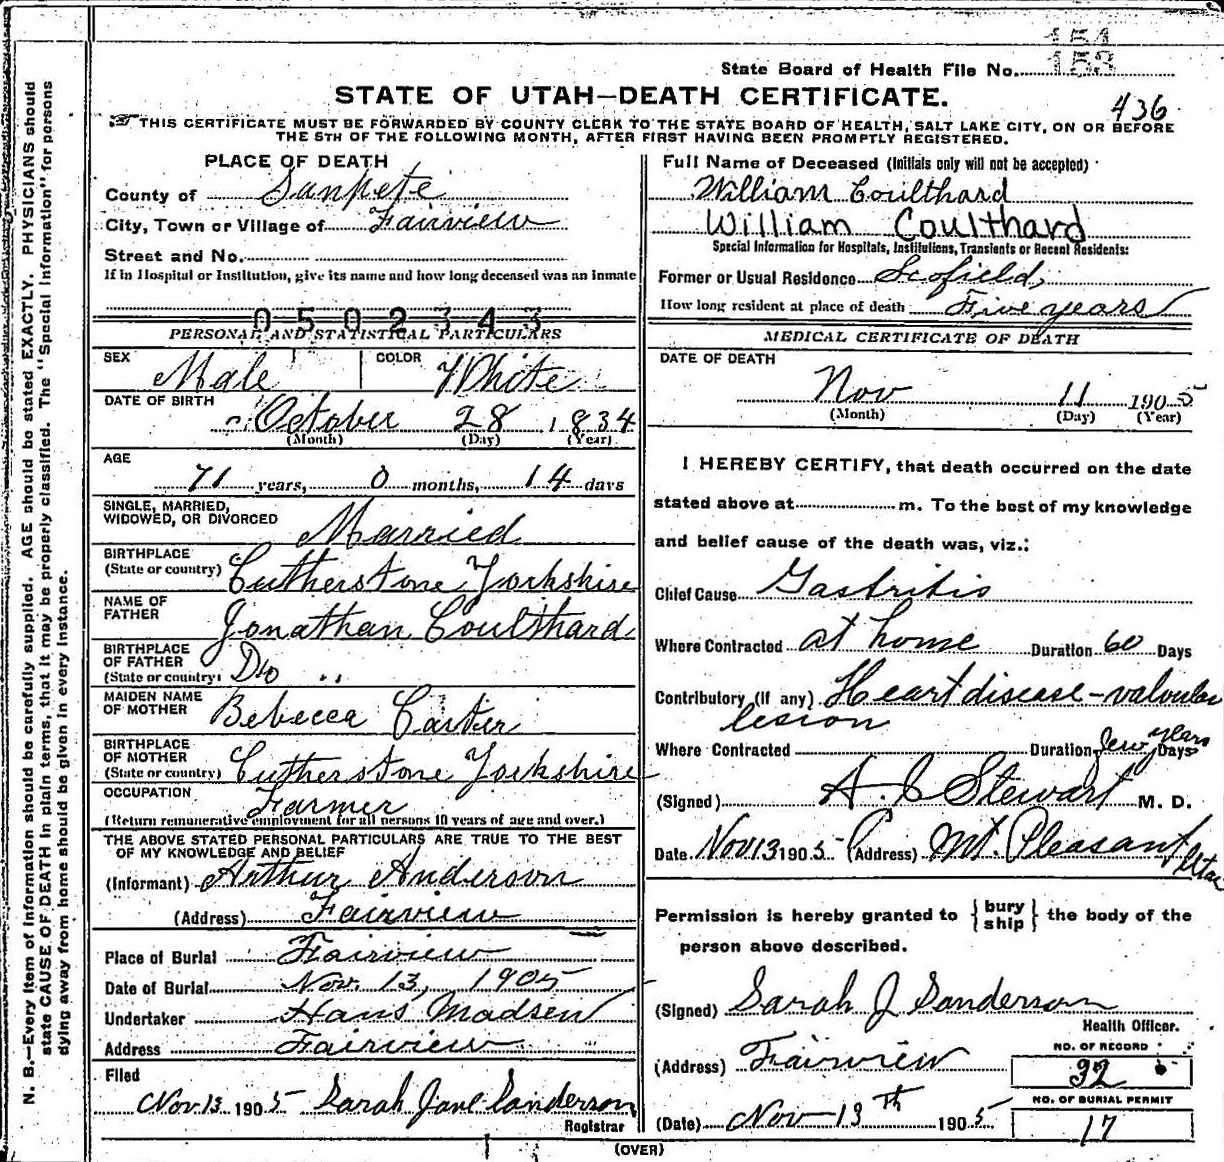 154
153
State Board of Health File No.
STATE OF UTAH—DEATH CERTIFICATE.
436
THIS CERTIFICATE MUST BE FORWARDED BY COUNTY CLERK TO THE STATE BOARD OF HEALTH, SALT LAKE CITY, ON OR BEFORE
THE 5TH OF THE FOLLOWING MONTH, AFTER FIRST HAVING BEEN PROMPTLY REGISTERED.
N. B.—Every item of information should be carefully supplied. AGE should be stated EXACTLY. PHYSICIANS should
state CAUSE OF DEATH in plain terms, that it may be properly classified. The "Special Information" for persons
dying away from home should be given in every instance.
PLACE OF DEATH
County of Sanpete
City, Town or Village of Fairview
Street and No.
If in Hospital or Institution, give its name and how long deceased was an inmate
0502343
PERSONAL AND STATISTICAL PARTICULARS
SEX Male COLOR White
DATE OF BIRTH
October 28 1834
(Month) (Day) (Year)
AGE
71 years, 0 months, 14 days
SINGLE, MARRIED,
WIDOWED, OR DIVORCED Married
BIRTHPLACE
(State or country) Cutherstone Yorkshire
NAME OF
FATHER Jonathan Coulthard
BIRTHPLACE
OF FATHER
(State or country) Do ..
MAIDEN NAME
OF MOTHER Bebecca Carter
BIRTHPLACE
OF MOTHER
(State or country) Cutherstone Yorkshire
OCCUPATION
Farmer
(Return remunerative employment for all persons 10 years of age and over.)
THE ABOVE STATED PERSONAL PARTICULARS ARE TRUE TO THE BEST
OF MY KNOWLEDGE AND BELIEF
(Informant) Arthur Anderson
(Address) Fairview
Place of Burial Fairview
Date of Burial Nov. 13, 1905
Undertaker Hans Madsen
Address Fairview
Filed
Nov 13 1905 Sarah Jane Sanderson
Registrar
Full Name of Deceased (Initials only will not be accepted)
William Coulthard
William Coulthard
Special Information for Hospitals, Institutions, Transients or Recent Residents:
Former or Usual Residence Scofield,
How long resident at place of death Five years
MEDICAL CERTIFICATE OF DEATH
DATE OF DEATH
Nov 11 1905
(Month) (Day) (Year)
I HEREBY CERTIFY, that death occurred on the date
stated above at m. To the best of my knowledge
and belief cause of the death was, viz.:
Chief Cause Gastritis
Where Contracted at home Duration 60 Days
Contributory (if any) Heart disease - valvular
lesion
Where Contracted Duration few years Days
(Signed) A. C Stewart M. D.
Date Nov 13 1905 (Address) Mt. Pleasant Utah
Permission is hereby granted to {bury ship} the body of the
person above described.
(Signed) Sarah J Sanderson
Health Officer.
(Address) Fairview
NO. OF RECORD
32
NO. OF BURIAL PERMIT
17
(Date) Nov 13th 1905
(OVER)